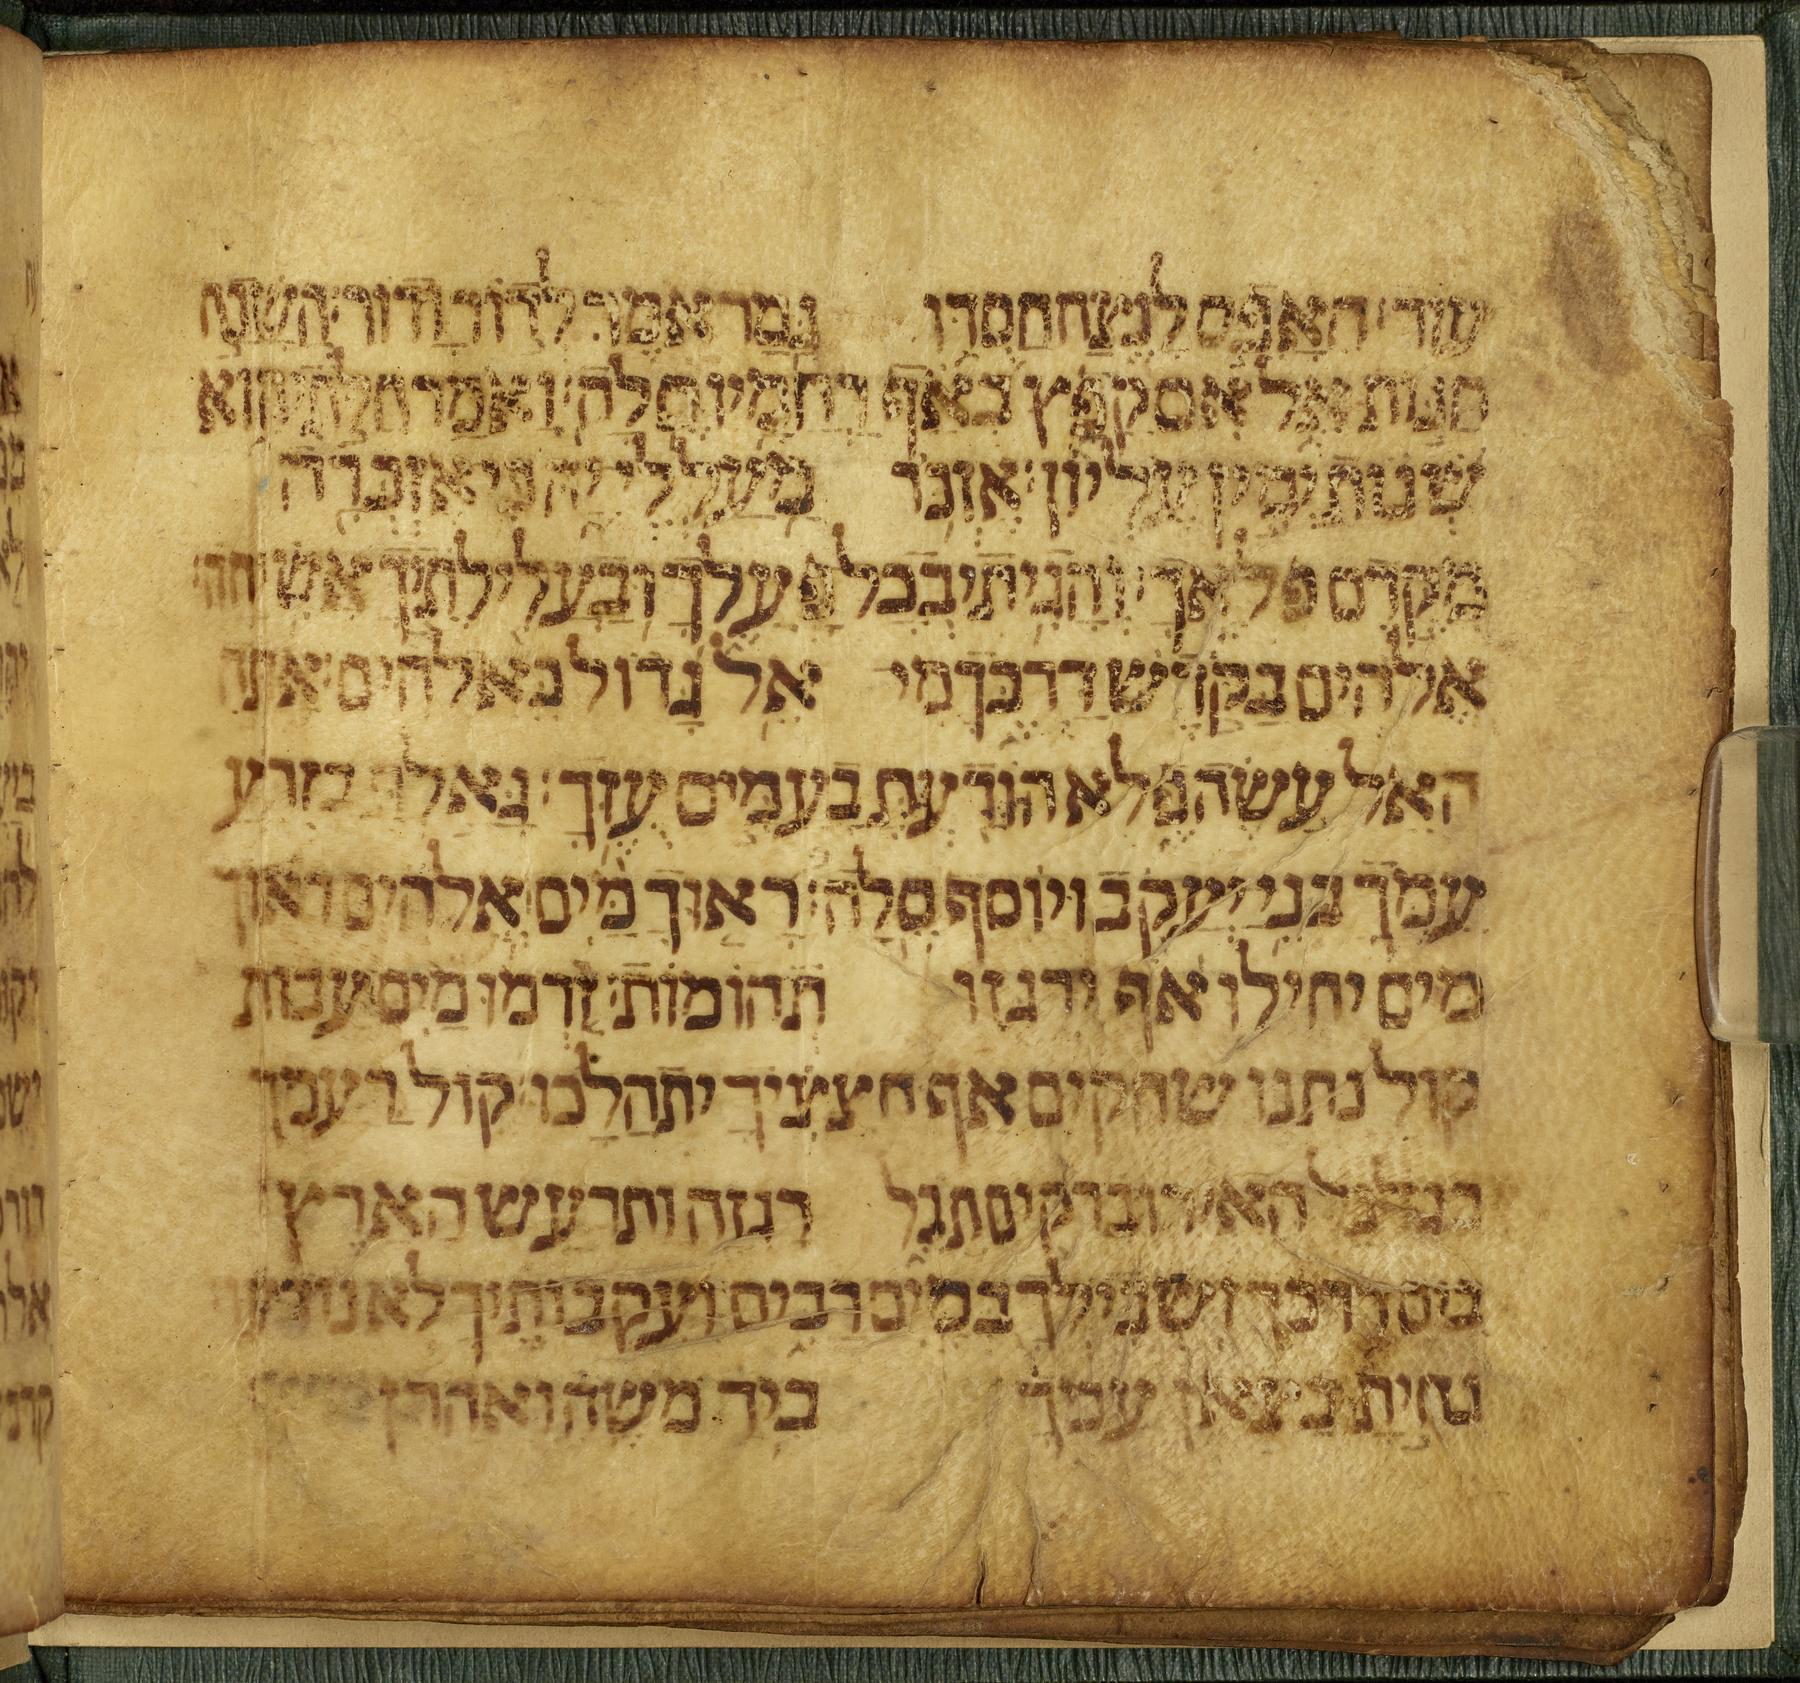 עוד האפס לנצח חסדו גמר אמר לדור ודור השכח
חנות אל אם קפץ באף רחמיו סלה ואמר חלתי הוא
שנות ימין עליון אזכר מעללי יה כי אזכרה
מקדם פלאך והגיתי בכל פעלך ובעלילתיך אשיחה
אלהים בקדש דרכך מי אל גדול כאלהים אתה
האל עשה פלא הודעת בעמים עזך גאלת בזרע
עמך בני יעקב ויוסף סלה ראוך מים אלהים ראוך
מים יחילו אף ירגזו תהומות זרמו מים עבות
קול נתנו שחקים אף חצציך יתהלכו קול רעמך
בגלגל האירו ברקים תבל רגזה ותרעש הארץ
בים דרכך ושבילך במים רבים ועקבותיך לא נודעו
נחית כצאן עמך ביד משה ואהרן